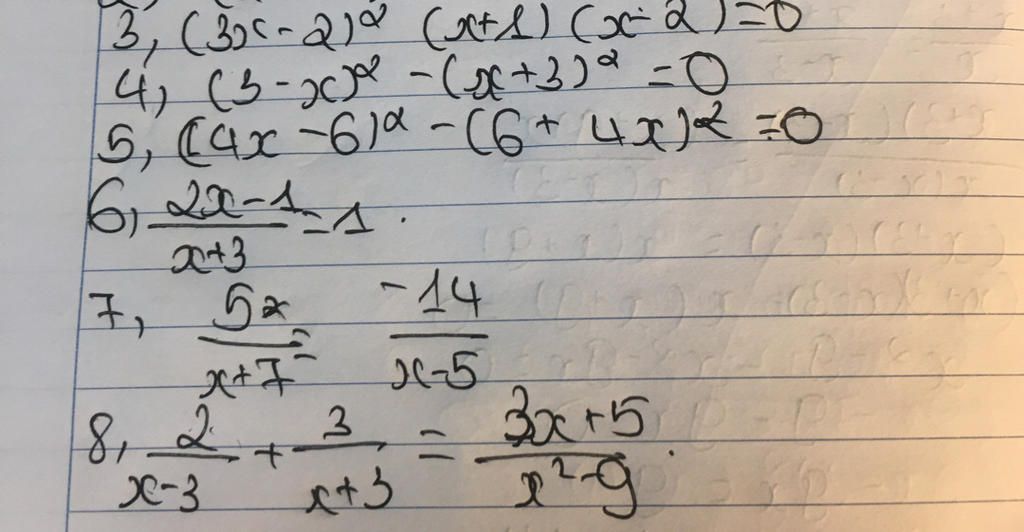 3, (3x-2)² (x+1) (x-2)=0
4, (3-x)² -(x+3)² =0
5, (4x-6)² -(6+4x)² =0
6, (2x-1)/(x+3) =1.
7, 5x/(x+7) = -14/(x-5)
8, 2/(x-3) + 3/(x+3) = (3x+5)/(x²-9).